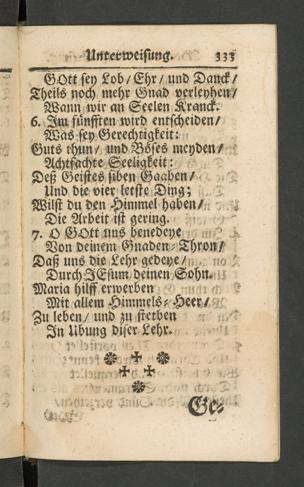 Unterweisung. 333
GOtt sey Lob/ Ehr/ und Danck/
Theils noch mehr Gnad verleyhen/
Wann wir an Seelen Kranck.
6. Im fünfften wird entscheiden/
Was sey Gerechtigkeit:
Guts thun/ und Böses meyden/
Achtfachte Seeligkeit:
Deß Geistes siben Gaaben/
Und die vier letste Ding;
Wilst du den Himmel haben/
Die Arbeit ist gering.
7. O GOtt uns benedeye
Von deinem Gnaden-Thron/
Daß uns die Lehr gedeye/
Durch JEsum deinen Sohn.
Maria hilff erwerben
Mit allem Himmels-Heer/
Zu leben/ und zu sterben
In Ubung diser Lehr.
Ge-